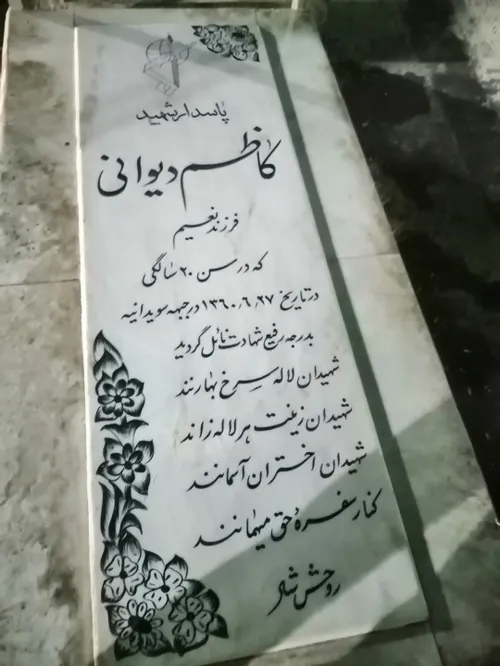 پاسدار شهید
کاظم دیوانی
فرزند نعیم
که در سن ۲۰ سالگی
در تاریخ ۱۳۶۰٫۶٫۲۷ در جبهه سویدانیه
بدرجه رفیع شهادت نائل گردید
شهیدان لاله سرخ بهارند
شهیدان زینت هر لاله زاند
شهیدان اختران آسمانند
کنار سفرهٔ حق میهمانند
روحش شاد